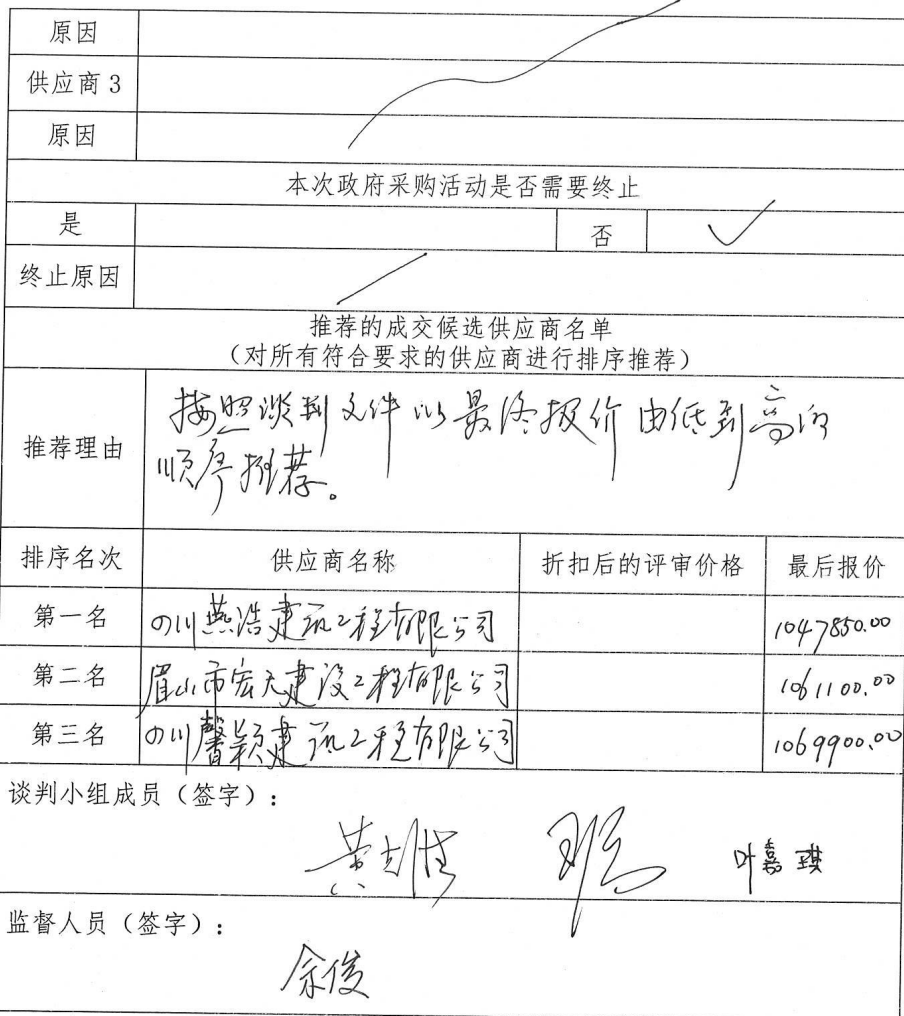 原因
供应商3
原因
本次政府采购活动是否需要终止
是 否 ✓
终止原因
推荐的成交候选供应商名单
（对所有符合要求的供应商进行排序推荐）
推荐理由 按照谈判文件以最终报价由低到高的
顺序推荐。
排序名次 供应商名称 折扣后的评审价格 最后报价
第一名 四川燕浩建筑工程有限公司 1047850.00
第二名 眉山市宏天建设工程有限公司 1061100.00
第三名 四川馨颖建筑工程有限公司 1069900.00
谈判小组成员（签字）：
叶嘉琪
监督人员（签字）：
余俊